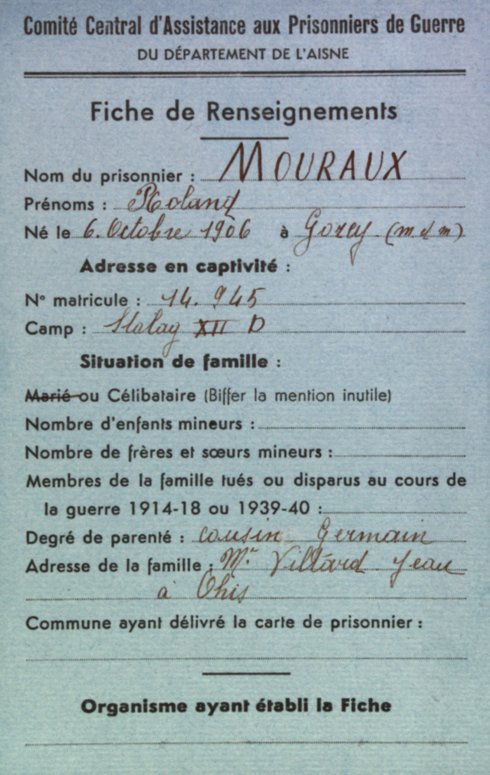 Comité Central d'Assistance aux Prisonniers de Guerre
DU DÉPARTEMENT DE L'AISNE
Fiche de Renseignements
Nom du prisonnier : MOURAUX
Prénoms : Roland
Né le 6. Octobre 1906 à Gorcy (m et m)
Adresse en captivité :
N° matricule : 14.945
Camp : Stalag XII D
Situation de famille :
Marié ou Célibataire (Biffer la mention inutile)
Nombre d'enfants mineurs :
Nombre de frères et sœurs mineurs :
Membres de la famille tués ou disparus au cours de
la guerre 1914-18 ou 1939-40 :
Degré de parenté : cousin Germain
Adresse de la famille : Mr Villard Jean
à Ohis
Commune ayant délivré la carte de prisonnier :
Organisme ayant établi la Fiche